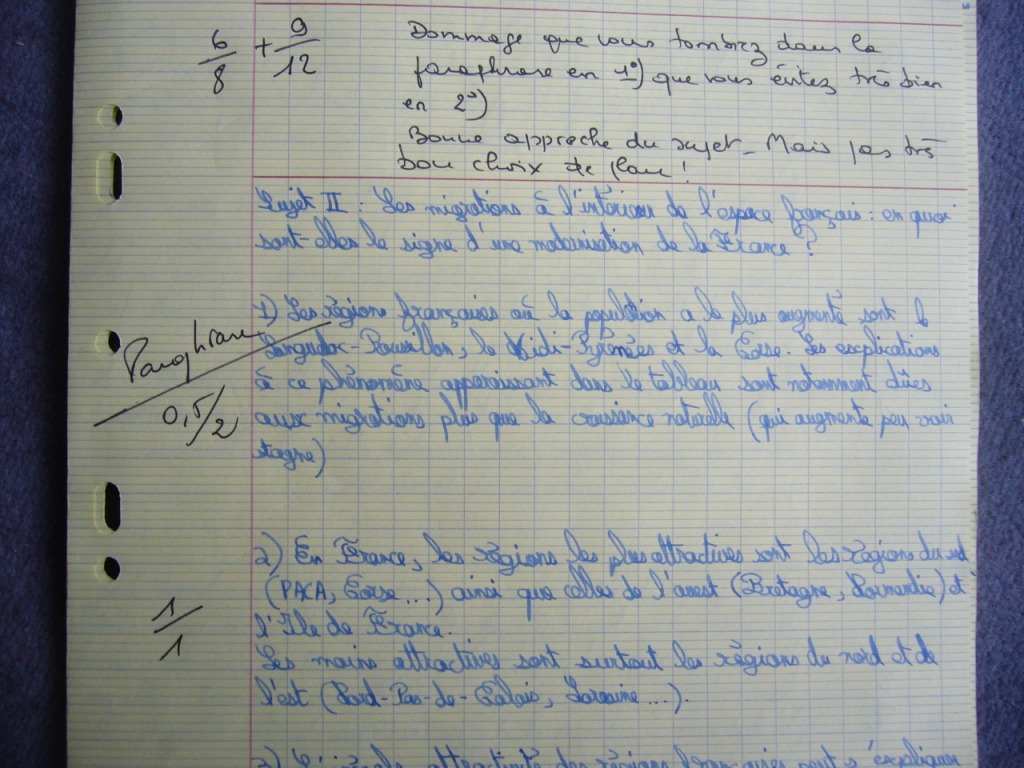 6/8 + 9/12
Dommage que vous tombiez dans la
paraphrase en 1°) que vous évitez très bien
en 2°)
Bonne approche du sujet. Mais pas très
bon choix de plan !
Sujet II : Les migrations à l'intérieur de l'espace français : en quoi
sont-elles le signe d'une modernisation de la France ?
1) Les régions françaises où la population a le plus augmenté sont le
Languedoc-Roussillon, le Midi-Pyrénées et la Corse. Les explications
à ce phénomène apparaissant dans le tableau sont notamment dûes
aux migrations plus que la croissance naturelle (qui augmente peu voir
stagne)
Paraphrase
0,5/2
2) En France, les régions les plus attractives sont les régions du sud
(PACA, Corse...) ainsi que celles de l'ouest (Bretagne, Normandie) et
l'Ile de France.
1/1
Les moins attractives sont surtout les régions du nord et de
l'est (Nord-Pas-de-Calais, Lorraine...).
attractivité des régions françaises peut s'expliquer